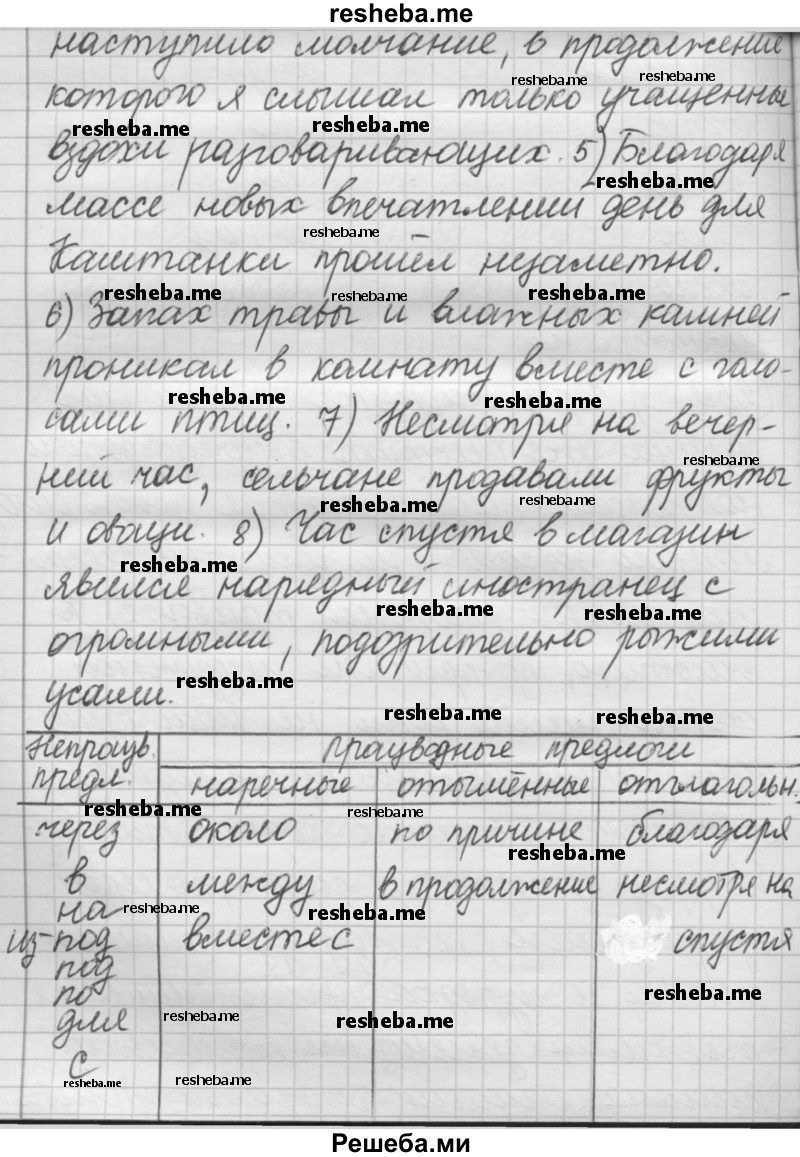 resheba.me
наступило молчание, в продолжение
resheba.me resheba.me
которого я слышал только учащенны
resheba.me resheba.me
вздохи разговаривающих. 5) Благодаря
resheba.me
массе новых впечатлений день для
resheba.me
Каштанки прошёл незаметно.
resheba.me resheba.me resheba.me
6) Запах травы и влажных камней
проникал в комнату вместе с голо-
resheba.me resheba.me
сами птиц. 7) Несмотря на вечер-
resheba.me
ний час, сельчане продавали фрукты
resheba.me resheba.me
и овощи. 8) Час спустя в магазин
resheba.me
явился нарядный иностранец с
resheba.me resheba.me
огромными, подозрительно рыжими
resheba.me
усами.
resheba.me resheba.me
Непроизв. производные предлоги
предл. наречные отымённые отглагольн.
resheba.me resheba.me
через около по причине благодаря
resheba.me resheba.me
в между в продолжение несмотря на
на resheba.me resheba.me
из-под вместе с спустя
под
по resheba.me
для resheba.me resheba.me
с
resheba.me resheba.me
Решеба.ми